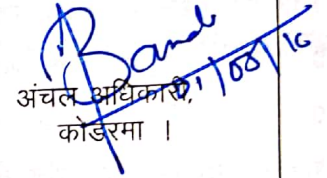 01/08/16
अंचल अधिकारी,
कोडरमा ।